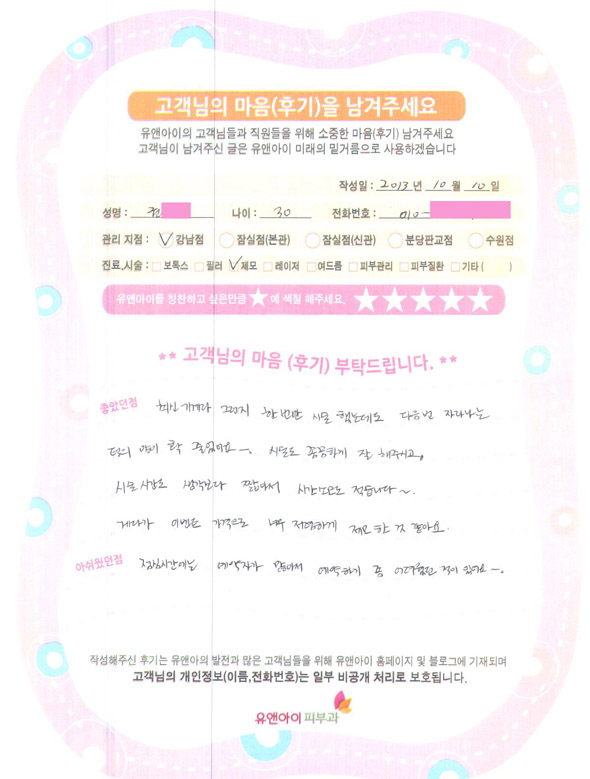 고객님의 마음(후기)을 남겨주세요
유앤아이의 고객님들과 직원들을 위해 소중한 마음(후기) 남겨주세요
고객님이 남겨주신 글은 유앤아이 미래의 밑거름으로 사용하겠습니다
작성일 : 2013 년 10 월 10 일
성명 : 권 나이 : 30 전화번호 : 010-
관리 지점 : 강남점 잠실점(본관) 잠실점(신관) 분당판교점 수원점
진료,시술 : 보톡스 필러 제모 레이저 여드름 피부관리 피부질환 기타 ( )
유앤아이를 칭찬하고 싶은만큼 ★ 에 색칠 해주세요. ★★★★★
** 고객님의 마음 (후기) 부탁드립니다. **
좋았던점 최신 기계라 그런지 한번만 시술 했는데도 다음번 자라나는
털의 양이 확 줄었어요~. 시술도 꼼꼼하게 잘 해주시고,
시술시간도 생각보다 짧아서 시간소모도 적습니다~.
게다가 이벤트 가격으로 너무 저렴하게 제모 한 것 같아요.
아쉬웠던점 점심시간에는 예약자가 많아서 예약하기 좀 어려웠던 적이 있어요~.
작성해주신 후기는 유앤아의 발전과 많은 고객님들을 위해 유앤아이 홈페이지 및 블로그에 기재되며
고객님의 개인정보(이름,전화번호)는 일부 비공개 처리로 보호됩니다.
유앤아이피부과